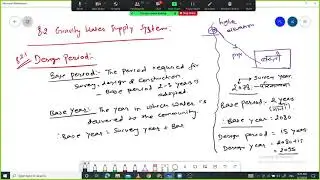 8.2 Gravity Water Supply System:
higher elevation
8.2.1
Design Period:-
pipe
बस्ती
Base period:- The period required for
Survey, design & Construction
- Base period 2-3 years is
adopted.
Survey year
2078 -
Base year:- The year in which water is
delivered to the community.
Base period = 2 years
Base year = 2080
∴ Base year = Survey year + Bas
Design period = 15 years
Design year = 2080+15
= 2095